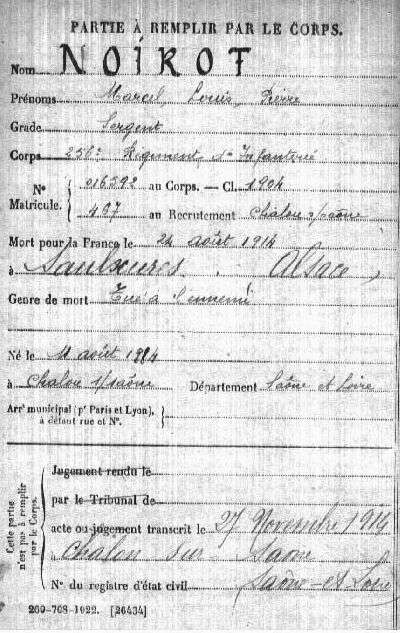 PARTIE À REMPLIR PAR LE CORPS.
Nom NOIROT
Prénoms Marcel, Louis, Pierre
Grade Sergent
Corps 256e Régiment d'Infanterie
N° Matricule. { 016592 au Corps. — Cl. 1904
467 au Recrutement Chalon s/Saône
Mort pour la France le 24 août 1914
à Saulxures. Alsace,
Genre de mort Tué à l'ennemi
Né le 11 août 1884
à Chalon s/Saône Département Saône et Loire
Arrt municipal (pr Paris et Lyon),
à défaut rue et N°.
Cette partie n'est pas à remplir par le Corps.
Jugement rendu le
par le Tribunal de
acte ou jugement transcrit le 27 Novembre 1914
à Chalon sur Saone
Saône-et-Loire
N° du registre d'état civil
260-708-1022. [26434]